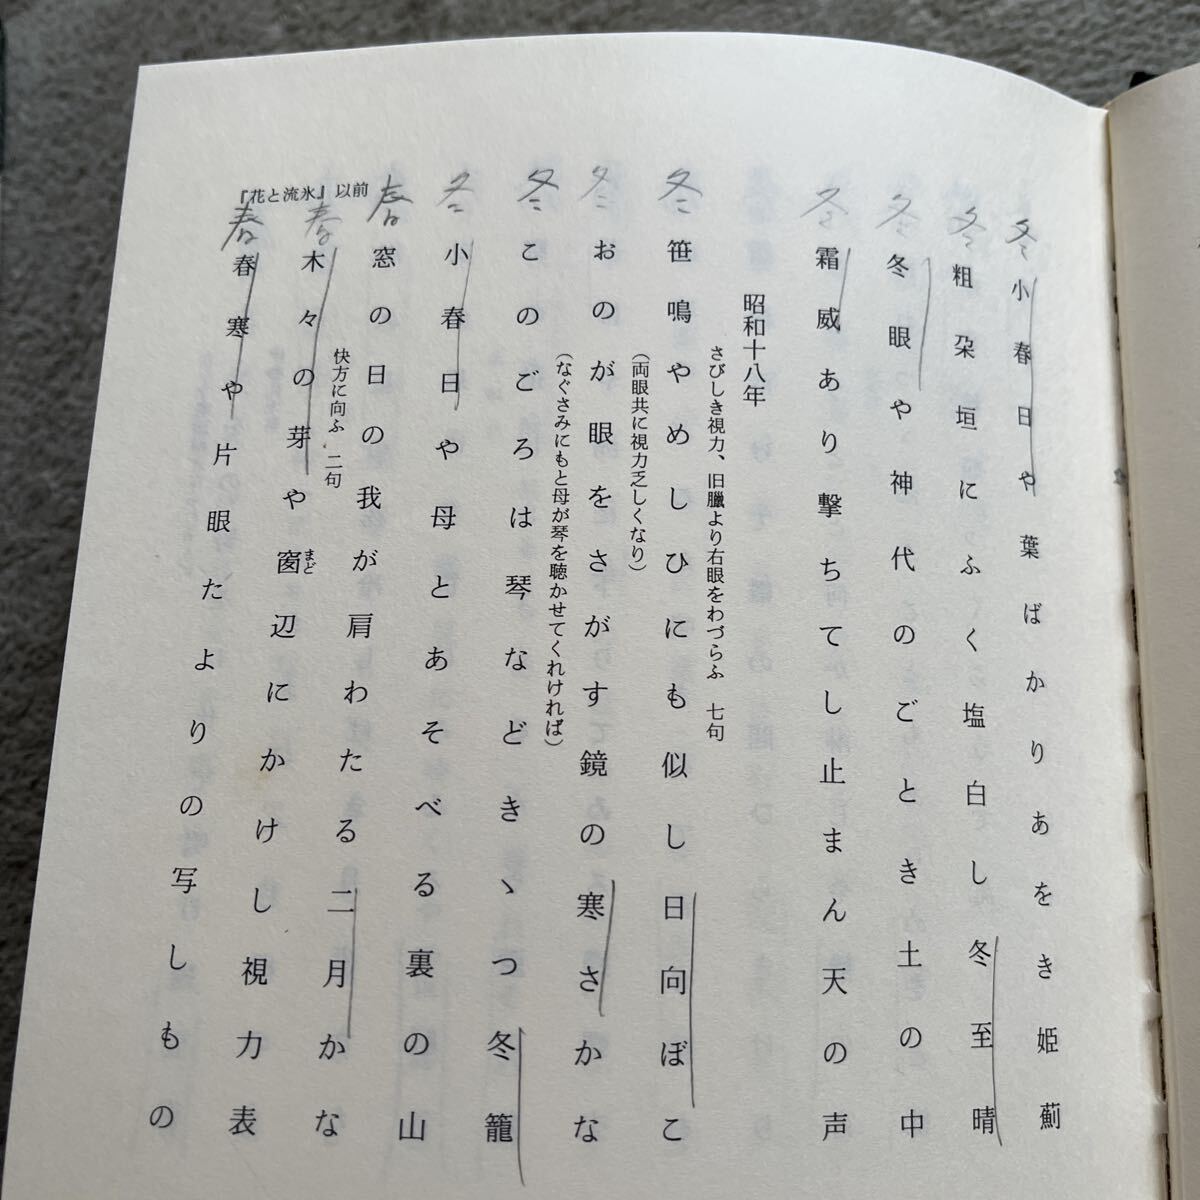 冬 小春日や葉ばかりあをき姫薊
冬 粗朶垣にふく塩白し冬至晴
冬 冬眠や神代のごとき土の中
冬 霜威あり撃ちてし止まん天の声
昭和十八年
さびしき視力、旧臘より右眼をわづらふ 七句
冬 笹鳴やめしひにも似し日向ぼこ
(両眼共に視力乏しくなり)
冬 おのが眼をさがす鏡の寒さかな
(なぐさみにもと母が琴を聴かせてくれければ)
冬 このごろは琴などきゝつ冬籠
冬 小春日や母とあそべる裏の山
春 窓の日の我が肩わたる二月かな
快方に向ふ 二句
春 木々の芽や窗まど辺にかけし視力表
春 春寒や片眼たよりの写しもの
『花と流氷』以前